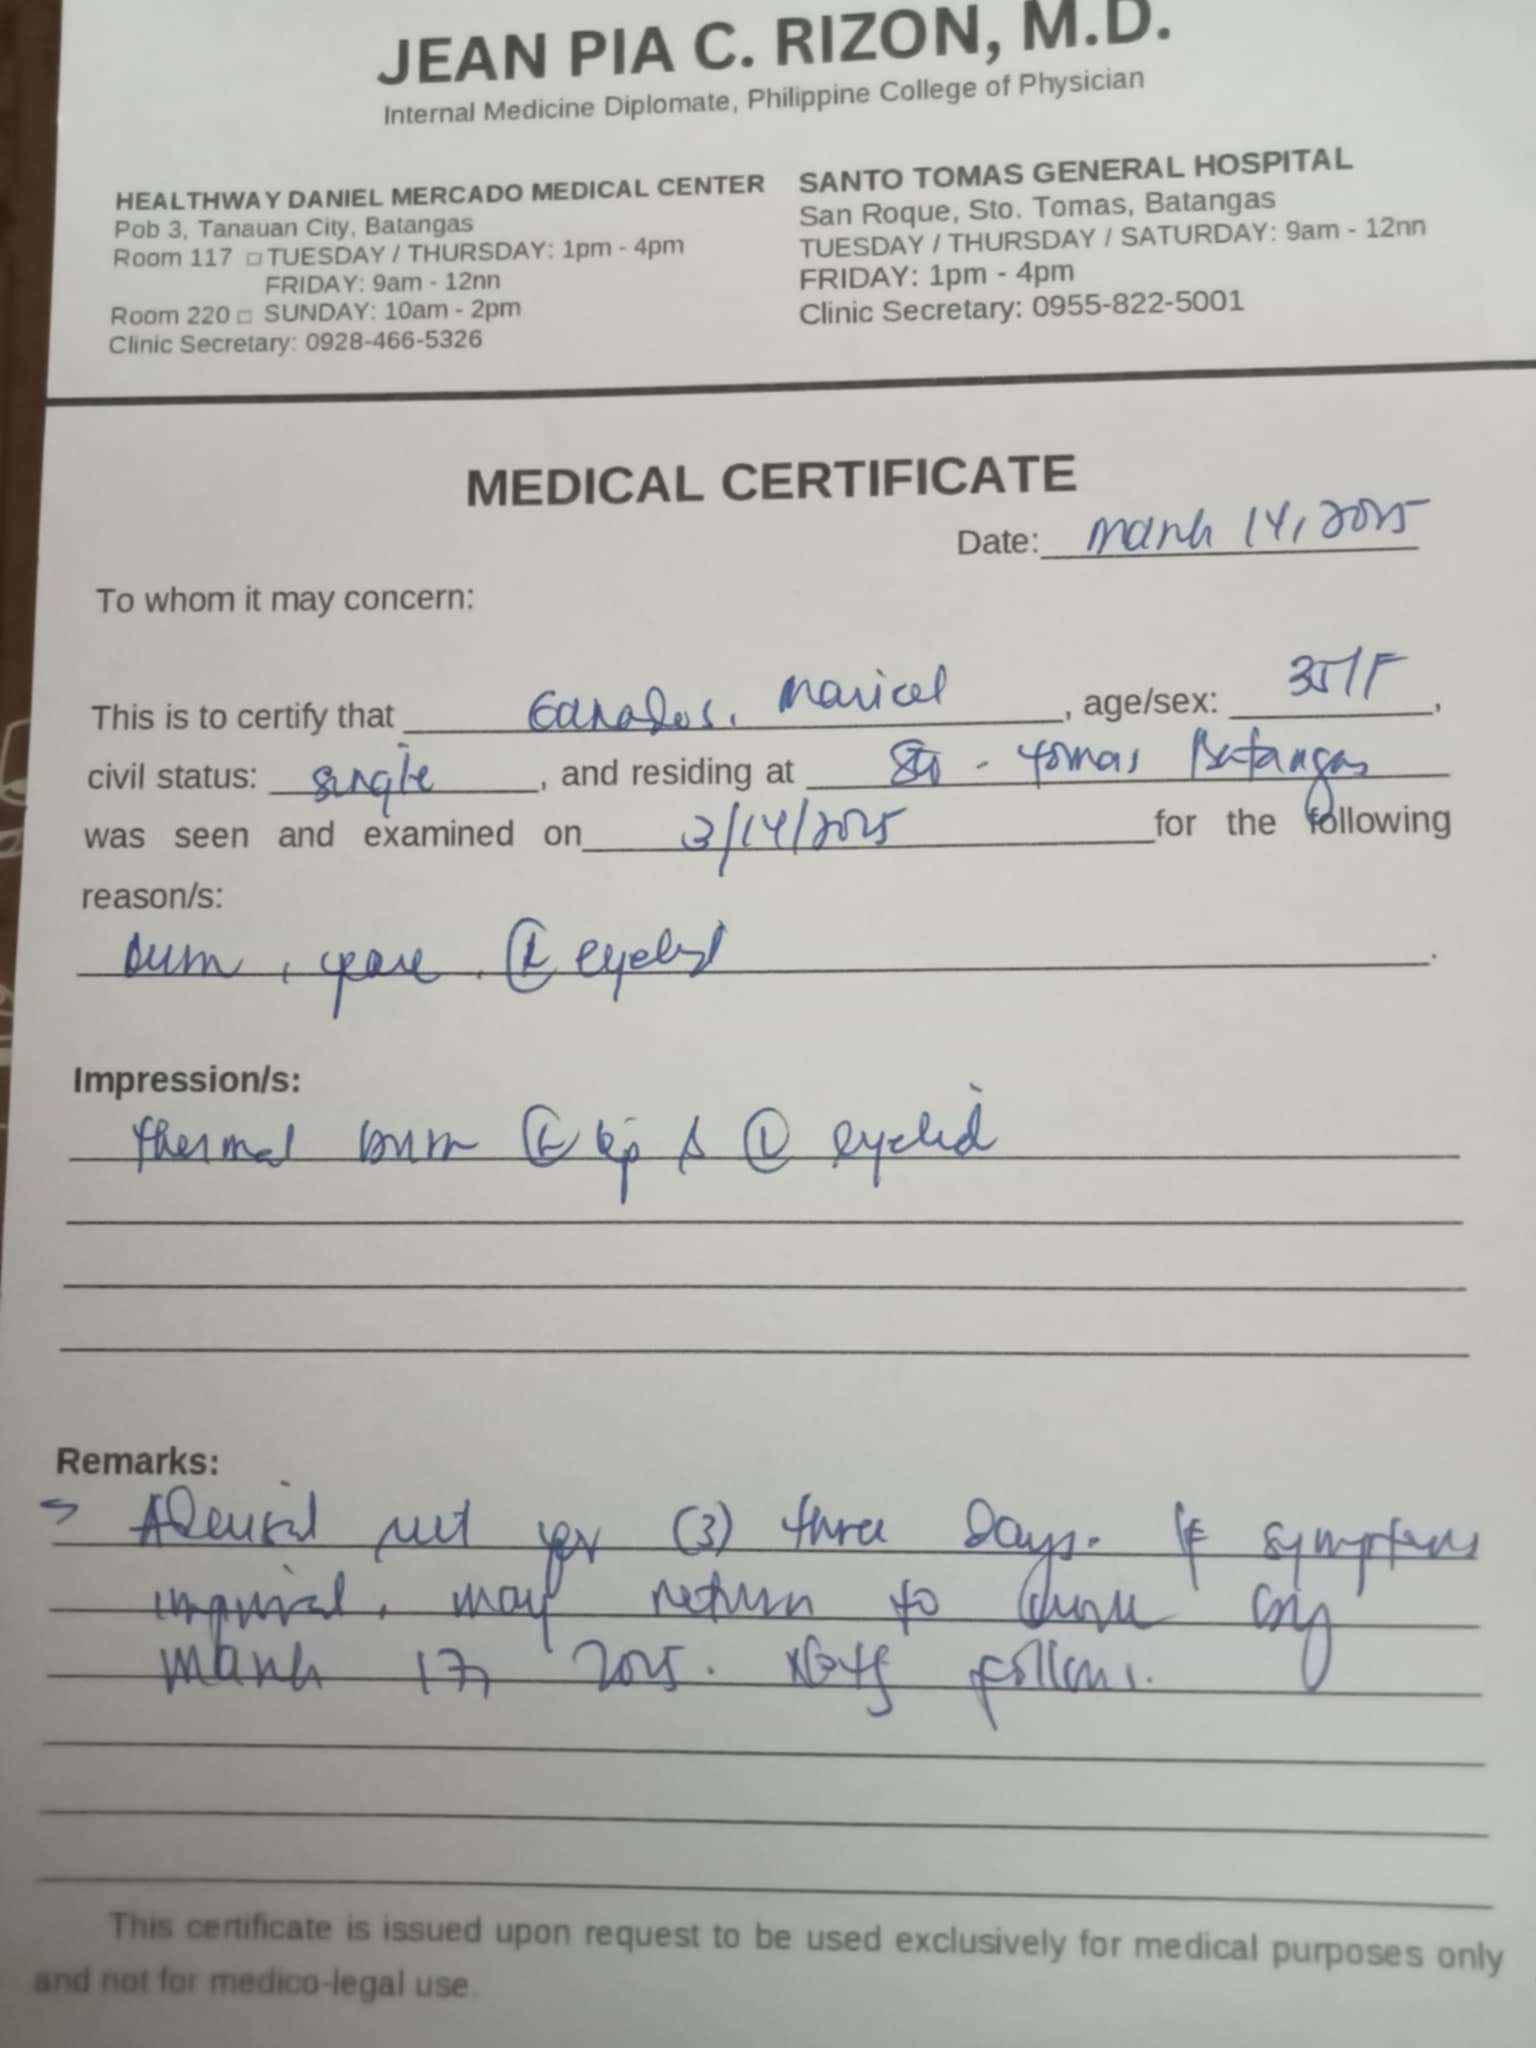 JEAN PIA C. RIZON, M.D.
Internal Medicine Diplomate, Philippine College of Physician
HEALTHWAY DANIEL MERCADO MEDICAL CENTER
Pob 3, Tanauan City, Batangas
Room 117 □ TUESDAY / THURSDAY: 1pm - 4pm
FRIDAY: 9am - 12nn
Room 220 □ SUNDAY: 10am - 2pm
Clinic Secretary: 0928-466-5326
SANTO TOMAS GENERAL HOSPITAL
San Roque, Sto. Tomas, Batangas
TUESDAY / THURSDAY / SATURDAY: 9am - 12nn
FRIDAY: 1pm - 4pm
Clinic Secretary: 0955-822-5001
MEDICAL CERTIFICATE
Date: March 14, 2025
To whom it may concern:
This is to certify that Maricel, age/sex: 35/F,
civil status: single, and residing at Sto. Tomas Batangas
was seen and examined on 3/14/2025 for the following
reason/s:
burn, (L) eyelid.
Impression/s:
thermal burn (L) lip & (L) eyelid
Remarks:
→ Advised rest for (3) three days. If symptoms
improved, may return to work by
March 17, 2025. follows.
This certificate is issued upon request to be used exclusively for medical purposes only
and not for medico-legal use.